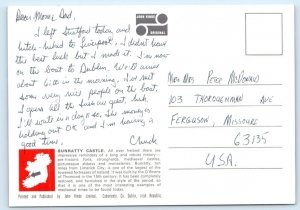 Dear Mom & Dad,
I left Stratford today and
hitch-hiked to Liverpool. I didn't have
the best luck but I made it. I'm now
on the boat to Dublin. We'll arrive
about 6:00 in the morning. I've met
some very nice people on the boat.
I guess all the Irish are great luck.
I'll write in a day or so. The money is
holding out OK and I'm having a
good time.
Chuck
JOHN HINDE
ORIGINAL
Mr & Mrs Pete McDonald
103 THOROUGHMAN AVE
FERGUSON, MISSOURI
63135
U.S.A.
BUNRATTY CASTLE. All over Ireland there are
impressive reminders of a long and robust history,
pre-historic forts, strongholds, mediaeval castles,
picturesque abbeys and monasteries. Bunratty, ten
miles from Limerick City, is one of the largest and
lowered fortresses of Ireland. It was built by the O'Briens
of Thomond in the 15th century. It has been completely
restored, and furnished in the style of the period, so
that it is now one of the most interesting examples
of mediaeval times to be found today.
Printed and Published by John Hinde Limited, Cabinteely, Co. Dublin, Irish Republic